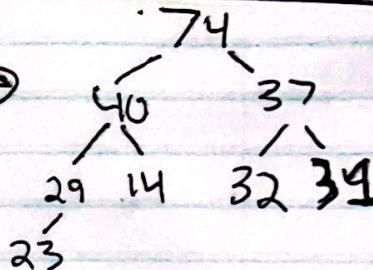 74
40 37
29 14 32 34
23